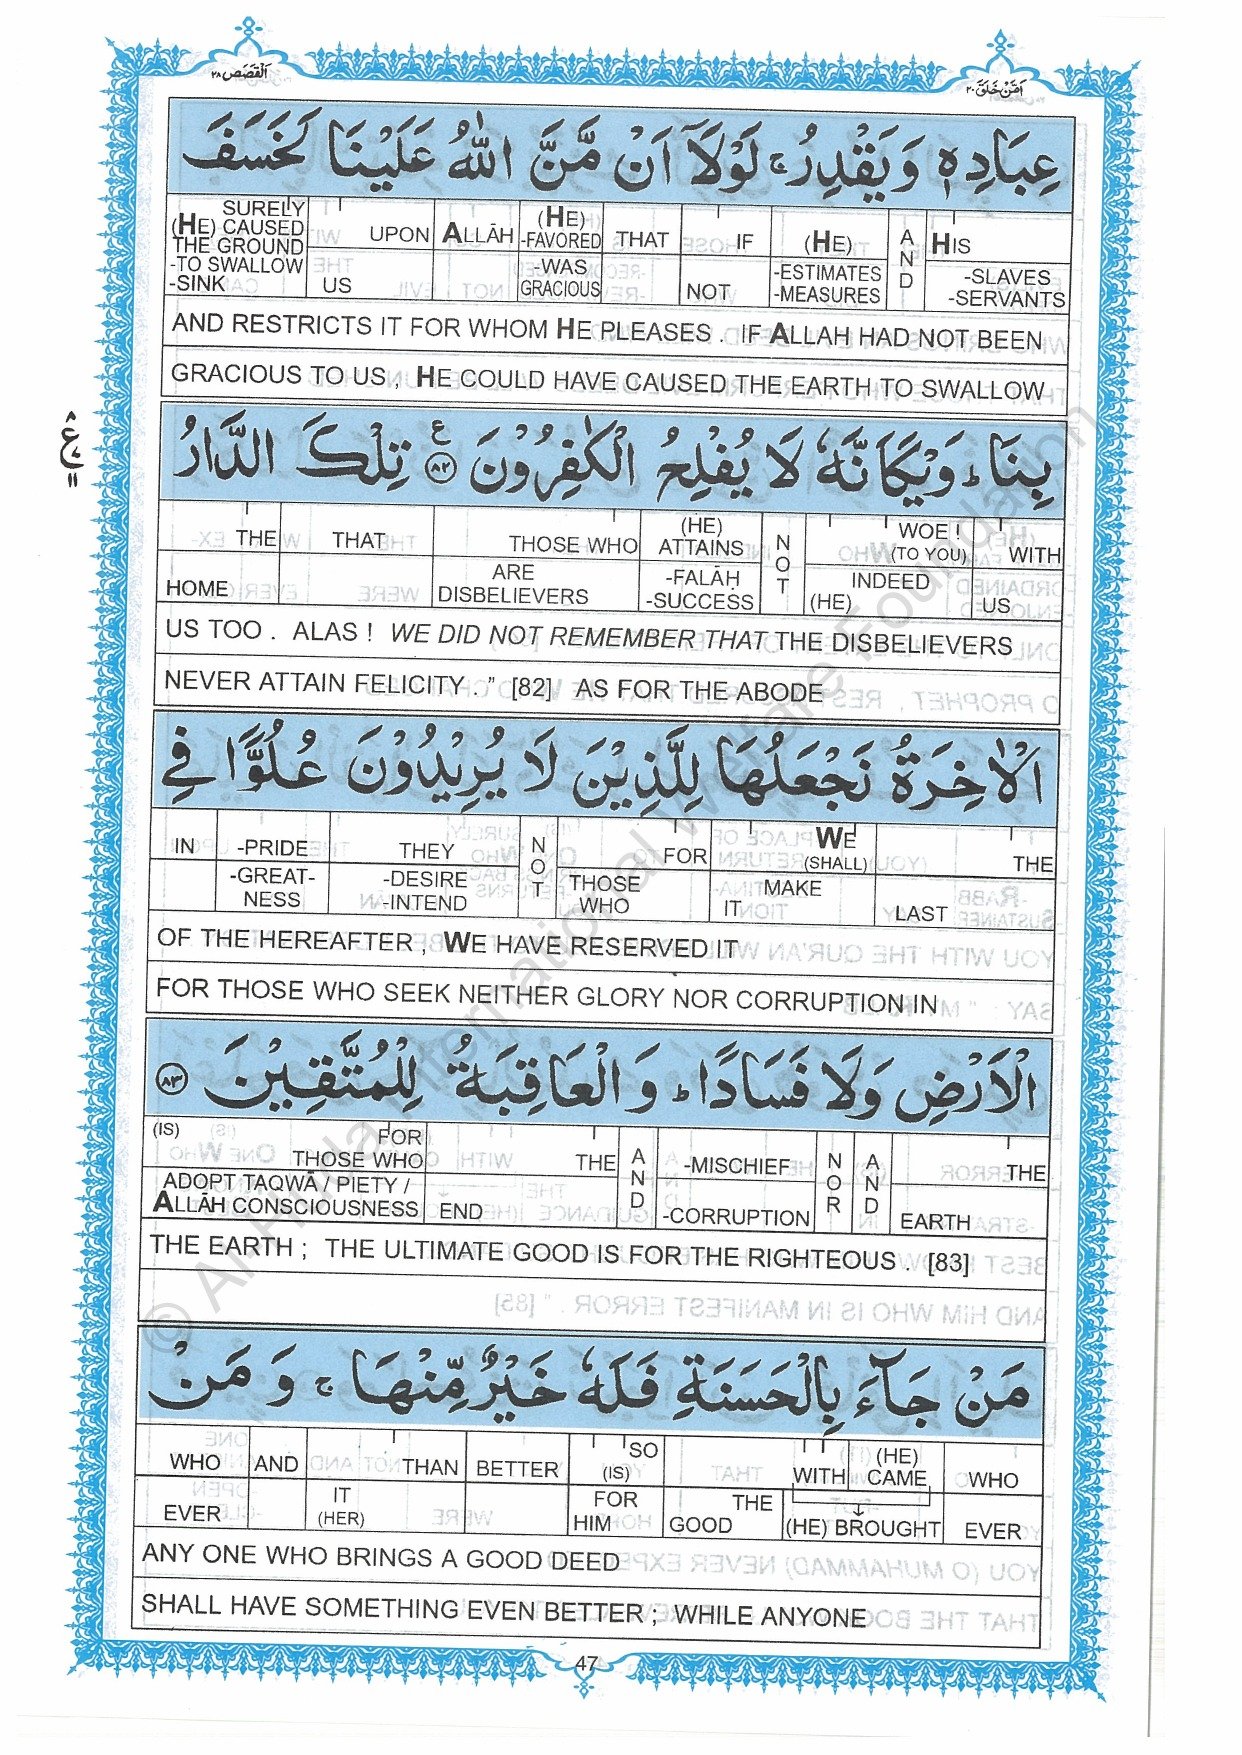 اَمَّنْ خَلَقَ ٢٠
اَلْقَصَص ٢٨
عِبَادِهٖ وَيَقْدِرُ ۚ لَوْلَآ اَنْ مَّنَّ اللّٰهُ عَلَيْنَا لَخَسَفَ
SURELY (HE) CAUSED THE GROUND -TO SWALLOW -SINK
UPON US
ALLĀH
(HE) -FAVORED -WAS GRACIOUS
THAT
IF NOT
(HE) -ESTIMATES -MEASURES
AND
HIS -SLAVES -SERVANTS
AND RESTRICTS IT FOR WHOM HE PLEASES . IF ALLAH HAD NOT BEEN
GRACIOUS TO US , HE COULD HAVE CAUSED THE EARTH TO SWALLOW
بِنَا ؕ وَيْكَاَنَّهٗ لَا يُفْلِحُ الْكٰفِرُوْنَ ع ٨٢ تِلْكَ الدَّارُ
٨ ع ١١
THE HOME
THAT
THOSE WHO ARE DISBELIEVERS
(HE) ATTAINS -FALĀḤ -SUCCESS
NOT
WOE ! (TO YOU) INDEED (HE)
WITH US
US TOO . ALAS ! WE DID NOT REMEMBER THAT THE DISBELIEVERS
NEVER ATTAIN FELICITY . ” [82] AS FOR THE ABODE
الْاٰخِرَةُ نَجْعَلُهَا لِلَّذِيْنَ لَا يُرِيْدُوْنَ عُلُوًّا فِي
IN
-PRIDE -GREAT-NESS
THEY -DESIRE -INTEND
NOT
FOR THOSE WHO
WE (SHALL) MAKE IT
THE LAST
OF THE HEREAFTER , WE HAVE RESERVED IT
FOR THOSE WHO SEEK NEITHER GLORY NOR CORRUPTION IN
الْاَرْضِ وَلَا فَسَادًا ؕ وَ الْعَاقِبَةُ لِلْمُتَّقِيْنَ ٨٣
(IS) FOR THOSE WHO ADOPT TAQWĀ / PIETY / ALLĀH CONSCIOUSNESS
THE END
AND
-MISCHIEF -CORRUPTION
NOR
AND
THE EARTH
THE EARTH ; THE ULTIMATE GOOD IS FOR THE RIGHTEOUS . [83]
مَنْ جَآءَ بِالْحَسَنَةِ فَلَهٗ خَيْرٌ مِّنْهَا ۚ وَ مَنْ
WHO EVER
AND
THAN IT (HER)
BETTER
SO (IS) FOR HIM
THE GOOD
WITH (HE) CAME (HE) BROUGHT
WHO EVER
ANY ONE WHO BRINGS A GOOD DEED
SHALL HAVE SOMETHING EVEN BETTER ; WHILE ANYONE
47
© Al-Huda International Welfare Foundation